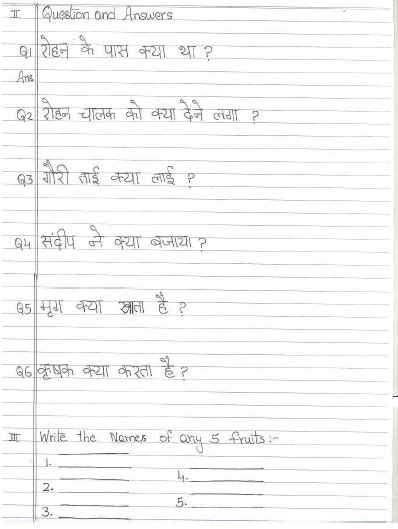 II Question and Answers
Q1 रोहन के पास क्या था ?
Ans
Q2 रोहन चालक को क्या देने लगा ?
Q3 गौरी ताई क्या लाई ?
Q4 संदीप ने क्या बजाया ?
Q5 मृग क्या खाता है ?
Q6 कृषक क्या करता है ?
III Write the Names of any 5 fruits :-
1.
4.
2.
5.
3.